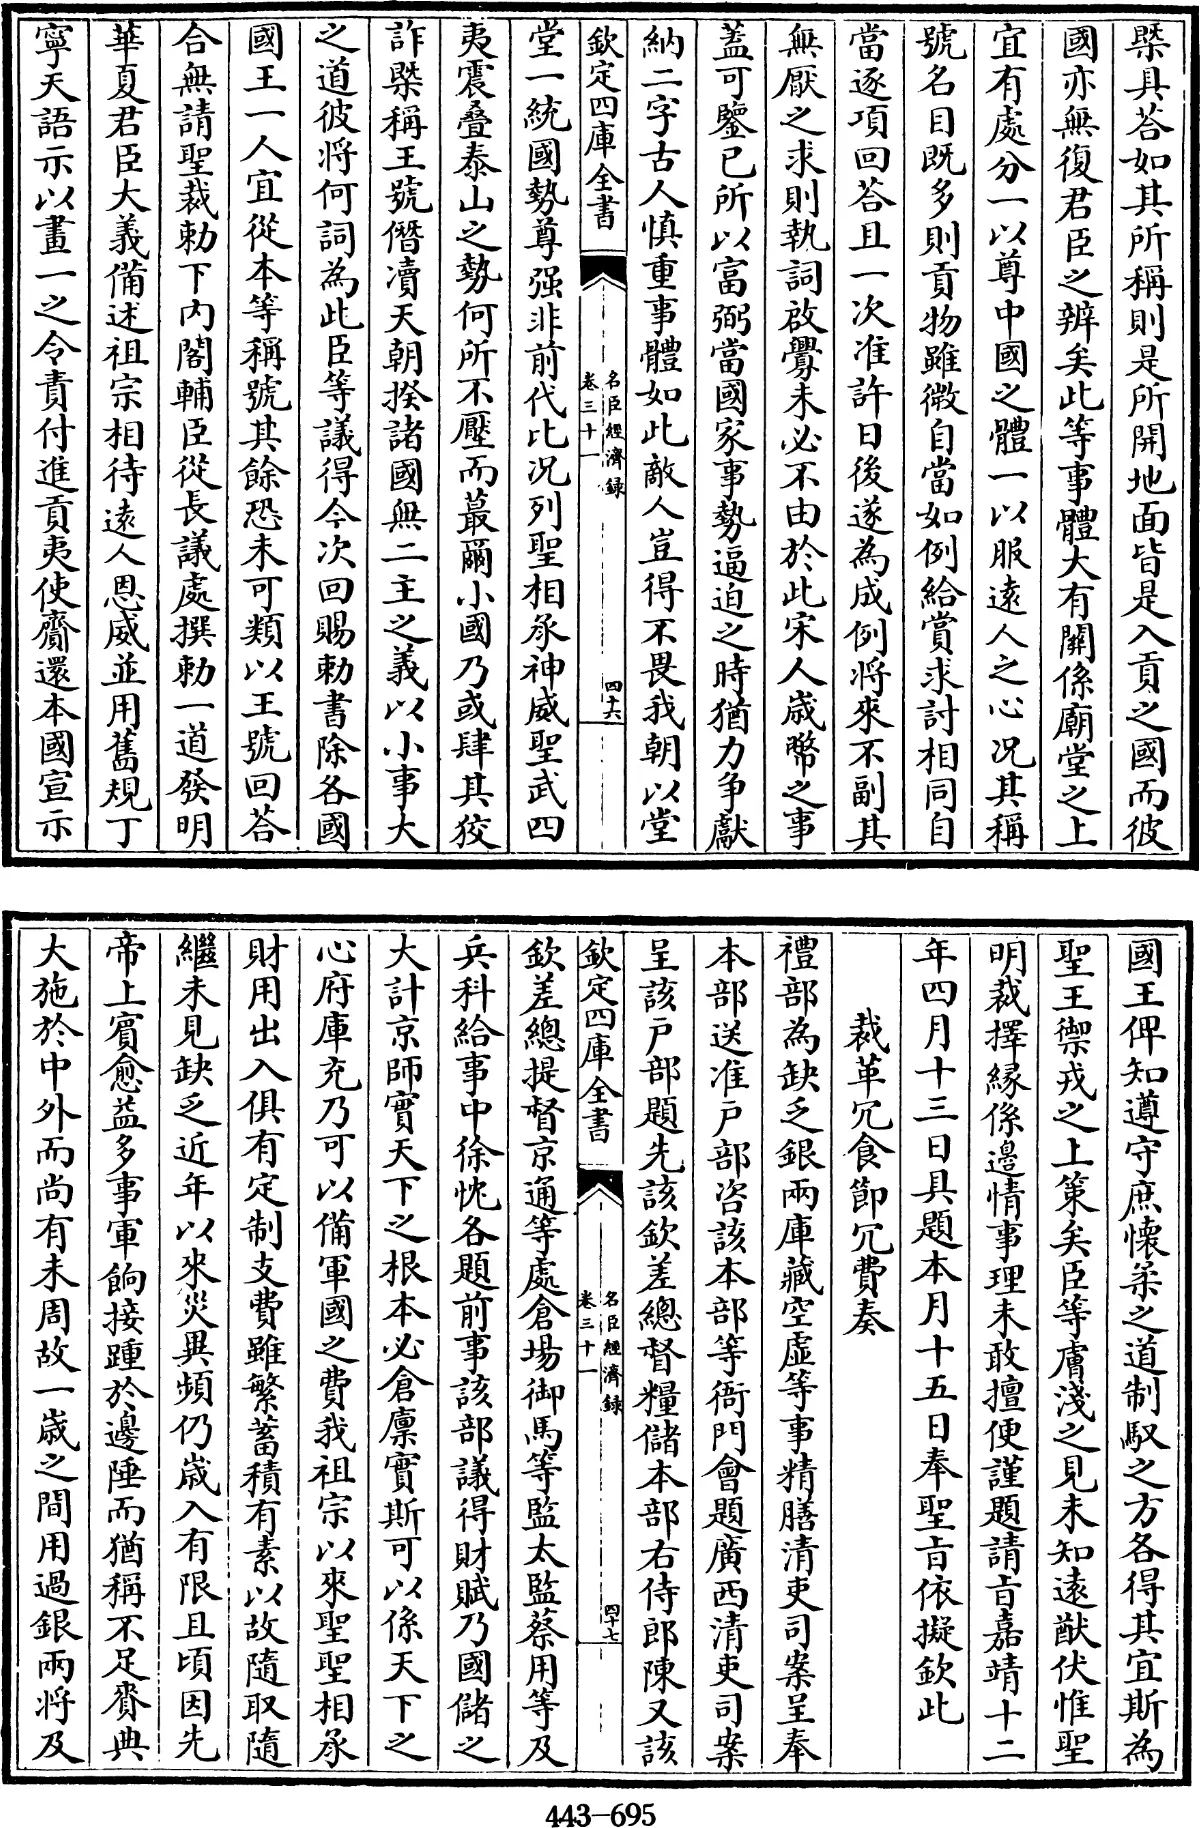 槩具荅如其所稱則是所開地面皆是入貢之國而彼
國亦無復君臣之辨矣此等事體大有關係廟堂之上
宜有處分一以尊中國之體一以服逺人之心况其稱
號名目既多則貢物雖微自當如例給賞求討相同自
當逐項回荅且一次准許日後遂為成例將來不副其
無厭之求則執詞啟釁未必不由於此宋人歲幣之事
蓋可鑒已所以富弼當國家事勢逼迫之時猶力争獻
納二字古人慎重事體如此敵人豈得不畏我朝以堂
欽定四庫全書
名臣經濟録
卷三十一
四十六
堂一統國勢尊强非前代比况列聖相承神威聖武四
夷震疊泰山之勢何所不壓而蕞爾小國乃或肆其狡
詐槩稱王號僭凟天朝揆諸國無二主之義以小事大
之道彼將何詞為此臣等議得今次回賜勅書除各國
國王一人宜從本等稱號其餘恐未可類以王號回荅
合無請聖裁勅下内閣輔臣從長議處撰勅一道發明
華夏君臣大義備述祖宗相待逺人恩威並用舊規丁
寧天語示以畫一之令責付進貢夷使齎還本國宣示
國王俾知遵守庶懷柔之道制馭之方各得其宜斯為
聖王禦戎之上策矣臣等膚淺之見未知逺猷伏惟聖
明裁擇縁係邊情事理未敢擅便謹題請旨嘉靖十二
年四月十三日具題本月十五日奉聖旨依擬欽此
裁革冗食節冗費奏
禮部為缺乏銀兩庫藏空虚等事精膳清吏司案呈奉
本部送准户部咨該本部等衙門會題廣西清吏司案
呈該户部題先該欽差總督糧儲本部右侍郎陳又該
欽定四庫全書
名臣經濟録
卷三十一
四十七
欽差總提督京通等處倉場御馬等監太監蔡用等及
兵科給事中徐忱各題前事該部議得財賦乃國儲之
大計京師實天下之根本必倉廩實斯可以係天下之
心府庫充乃可以備軍國之費我祖宗以來聖聖相承
財用出入俱有定制支費雖繁蓄積有素以故隨取隨
繼未見缺乏近年以來災異頻仍歲入有限且頃因先
帝上賓愈益多事軍餉接踵於邊陲而猶稱不足賚典
大施於中外而尚有未周故一歲之間用過銀兩將及
443-695